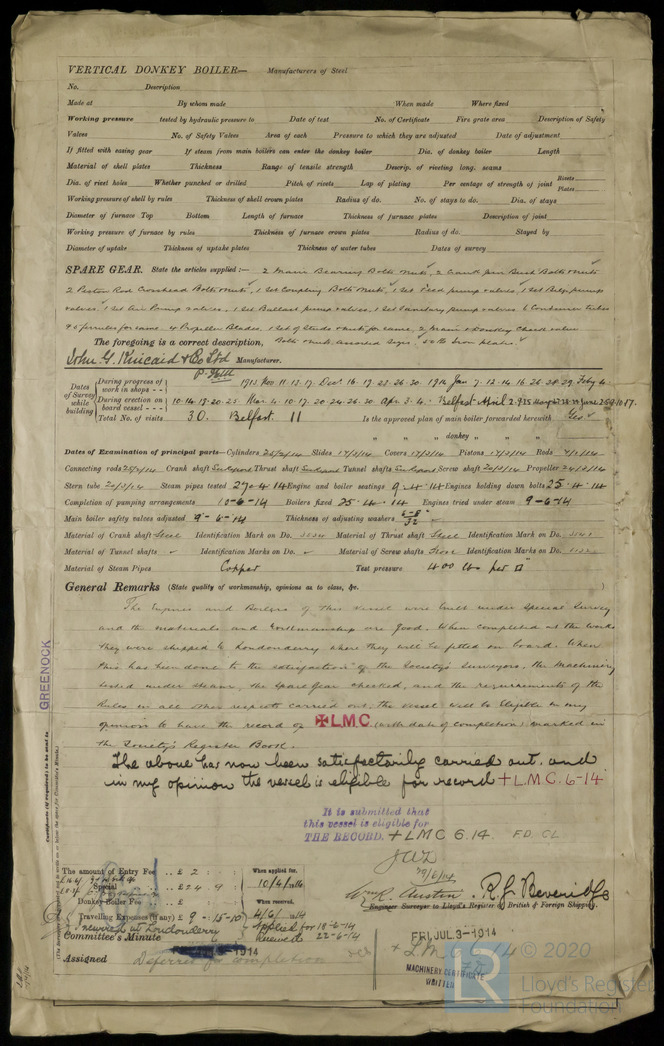 VERTICAL DONKEY BOILER— Manufacturers of Steel
No. Description
Made at By whom made When made Where fixed
Working pressure tested by hydraulic pressure to Date of test No. of Certificate Fire grate area Description of Safety
Valves No. of Safety Valves Area of each Pressure to which they are adjusted Date of adjustment
If fitted with easing gear If steam from main boilers can enter the donkey boiler Dia. of donkey boiler Length
Material of shell plates Thickness Range of tensile strength Descrip. of riveting long. seams
Dia. of rivet holes Whether punched or drilled Pitch of rivets Lap of plating Per centage of strength of joint Rivets Plates
Working pressure of shell by rules Thickness of shell crown plates Radius of do. No. of stays to do. Dia. of stays
Diameter of furnace Top Bottom Length of furnace Thickness of furnace plates Description of joint
Working pressure of furnace by rules Thickness of furnace crown plates Radius of do. Stayed by
Diameter of uptake Thickness of uptake plates Thickness of water tubes Dates of survey
SPARE GEAR. State the articles supplied:— 2 Main Bearing Bolts & Nuts, 2 Crank pin Bush Bolts & Nuts
2 Piston Rod Crosshead Bolts & Nuts, 1 Set Coupling Bolts & Nuts, 1 Set Feed pump valves, 1 Set Bilge pump
valves, 1 Set Air Pump valves, 1 Set Ballast pump valves, 1 Set Sanitary pump valves, 6 Condenser tubes
& ferrules for same 4 Propeller Blades, 1 Set of Studs & nuts for same, 2 main & Donkey Check valves
The foregoing is a correct description, Bolts & Nuts assorted Sizes, Iron plates
John G. Kincaid & Co Ltd Manufacturer.
Dates of Survey while building
During progress of work in shops - - 1913 Nov 11. 13. 17. Dec. 16. 19. 23. 26. 30 1914 Jan 7. 12. 14. 16. 26. 28. 29. Feb 4
During erection on board vessel - - - 10. 14. 18. 20. 25 Mar 4. 10. 17. 20. 24. 26. 30 Apr. 3. 4. Belfast April
Total No. of visits 30. Belfast. 11 Is the approved plan of main boiler forwarded herewith Yes
" " " donkey " " "
Dates of Examination of principal parts—Cylinders Slides 17/3/14 Covers 17/3/14 Pistons 17/3/14 Rods
Connecting rods Crank shaft Thrust shaft Tunnel shafts Screw shaft 20/3/14 Propeller 24/3/14
Stern tube 20/3/14 Steam pipes tested 27-4-14 Engine and boiler seatings 9.4.14 Engines holding down bolts 25.4.14
Completion of pumping arrangements 10-6-14 Boilers fixed 25.4.14 Engines tried under steam 9-6-14
Main boiler safety valves adjusted 9-6-14 Thickness of adjusting washers
Material of Crank shaft Steel Identification Mark on Do. Material of Thrust shaft Steel Identification Mark on Do.
Material of Tunnel shafts Identification Marks on Do. Material of Screw shafts Identification Marks on Do.
Material of Steam Pipes Copper Test pressure 400 lb per □"
General Remarks (State quality of workmanship, opinions as to class, &c.
The Engines and Boilers of this vessel were built under Special Survey
and the materials and workmanship are good. When completed at the works
they were shipped to Londonderry where they will be fitted on board. When
this has been done to the satisfaction of the Society's Surveyors, the Machinery
tested under steam, the Spare Gear checked, and the requirements of the
Rules in all other respects carried out, the vessel will be Eligible in my
opinion to have the record of ✠LMC (with date of completion) marked in
the Society's Register Book.
The above has now been satisfactorily carried out. and
in my opinion the vessel is eligible for record + L.M.C. 6-14
It is submitted that
this vessel is eligible for
THE RECORD. + LMC 6.14. F.D. CL
GREENOCK
The amount of Entry Fee .. £ 2 : :
Special .. £ 24 . 9 :
Donkey Boiler Fee .. £ : :
Travelling Expenses (if any) £ 9 - 15-10
When applied for, 10/4/1914
When received, 4/6/1914
Applied for 18-6-14
Received 22-6-14
Wm R. Austin. R. J. Beveridge
Engineer Surveyor to Lloyd's Register of British & Foreign Shipping.
Committee's Minute
FRI. JUL 3-1914
Assigned Deferred for completion
+ L.M.C. 6.14
MACHINERY CERTIFICATE
WRITTEN
© 2020
LR
Lloyd's Register
Foundation